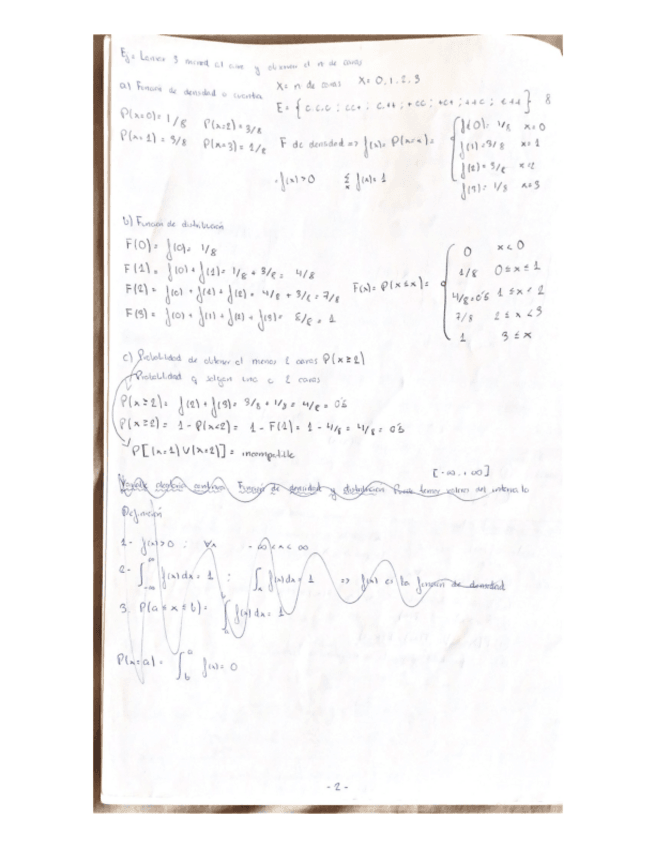 Ej= Lanzar 3 moned al aire y observar el n de caras
a) Función de densidad o cuantía X= n de caras X= 0,1,2,3
E= { c.c.c ; cc+ ; c++ ; +cc ; +c+ ; ++c ; +++ } 8
P(x=0)= 1/8 P(x=2)= 3/8
P(x=1)= 3/8 P(x=3)= 1/8 F de densidad => f(x)= P(x=x)= { f(0)= 1/8 x=0
f(1)= 3/8 x=1
f(2)= 3/8 x=2
f(3)= 1/8 x=3
· f(x)>0 Σx f(x)= 1
b) Función de distribución
F(0)= f(0)= 1/8
F(1)= f(0)+f(1)= 1/8 + 3/8 = 4/8
F(2)= f(0)+f(1)+f(2)= 4/8 + 3/8 = 7/8
F(3)= f(0)+f(1)+f(2)+f(3)= 8/8 = 1
F(x)= P(x≤x)= { 0 x<0
1/8 0≤x≤1
4/8=0'5 1≤x<2
7/8 2≤x<3
1 3≤x
c) Probabilidad de obtener al menos 2 caras P(x≥2)
Probabilidad q salgan una o 2 caras
P(x≥2)= f(2)+f(3)= 3/8 + 1/8 = 4/8 = 0'5
P(x≥2)= 1-P(x<2)= 1-F(1)= 1-4/8 = 4/8 = 0'5
P[(x=1)∪(x=2)]= incompatible
[-∞,+∞]
Variable aleatoria continua. Función de densidad y distribución. Puede tomar valores en intervalo
Definición
1- f(x)>0 ; ∀x -∞<x<∞
2- ∫_{-∞}^{∞} f(x)dx= 1 ; ∫_x f(x)dx= 1 => f(x) es la función de densidad
3. P(a≤x≤b)= ∫_a^b f(x)dx= 1
P(x=a)= ∫_b^a f(x)= 0
-2-